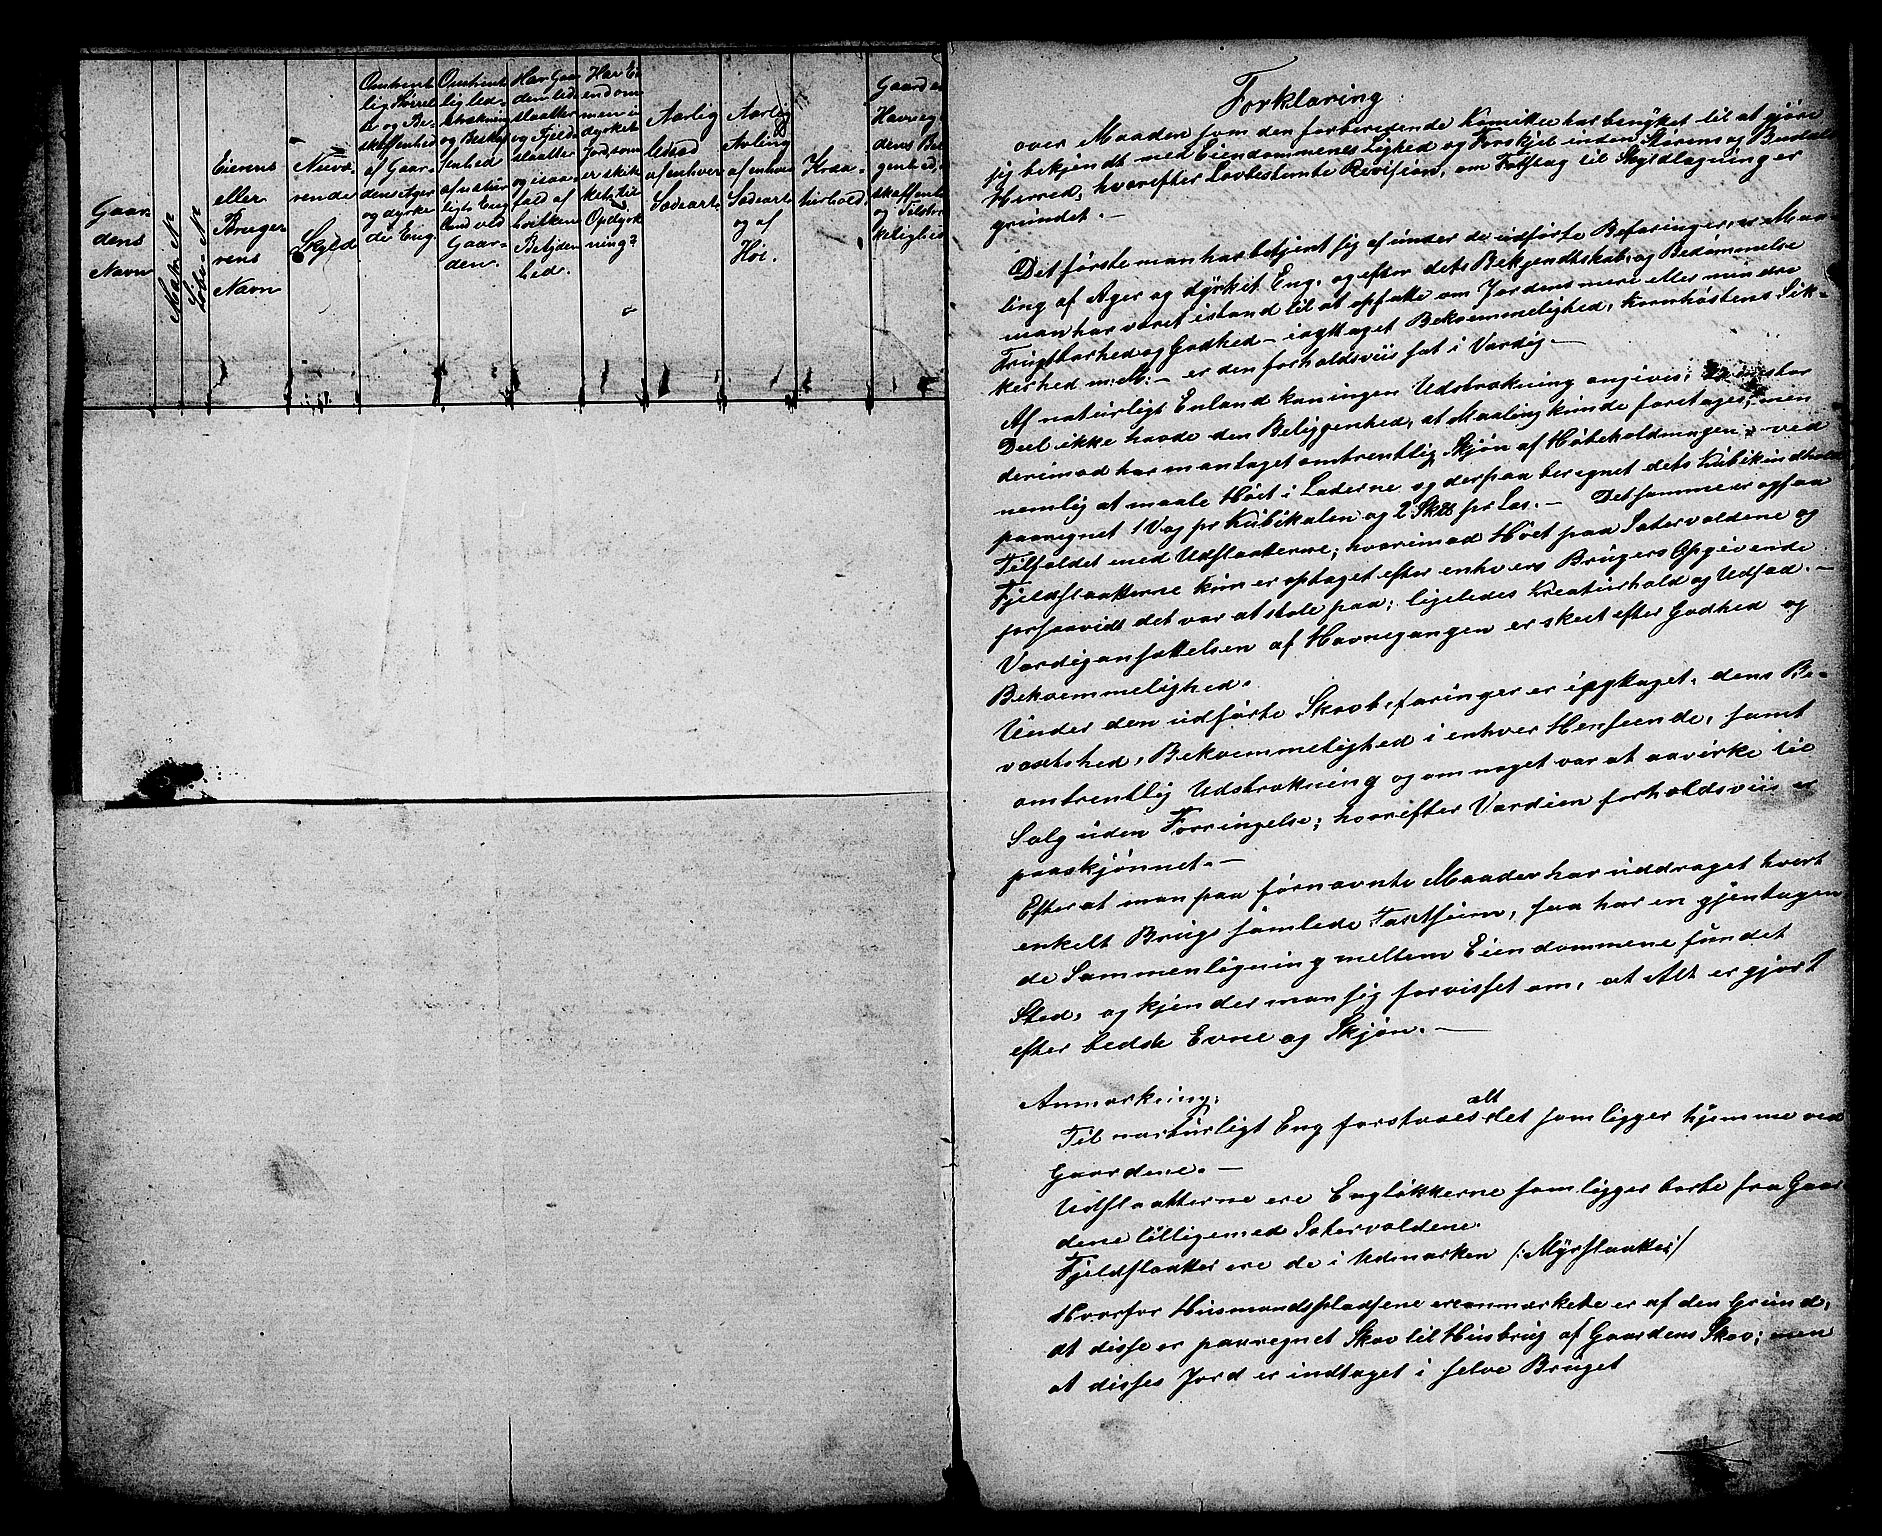 Gaar-
dens
Navn
Matr. N
Løbe-N
Eierens
eller
Bruge-
rens
Navn
Nuvæ-
rende
Skyld
Omtrent-
lig Størrel-
se og Be-
skaffenhed
af Gaar-
dens Ager
og dyrke-
de Eng.
Omtrent-
lig Ud-
strækning
og Beskaf-
fenhed
af natur-
ligt Eng-
land ved
Gaar-
den.
Har Gaar-
den Ud-
slaatter
og Fjeld-
slaatter
og i saa-
fald af
hvilken
Betyden-
hed.
Har Ei-
endom-
men u-
dyrket
Jord, som
er skik-
ket til
Opdyrk-
ning?
Aarlig
Udsæd
af enhver
Sædeart.
Aarlig
Avling
af enhver
Sædeart
og af
Høi.
Krea-
turhold.
Gaardens
Havneg
dens Be
genhed,
skaffenh
og Tilstr
kelighed
Forklaring
over Maaden som den forberedende Komitee har benyttet til at gjøre
sig bekjendt med Eiendommenes Lighed og Forskjel inden Størens og Budals
Herred, hvorefter Lovbestemte Revision, om Forslag til Skyldlægning er
grundet. -
Det første man har betjent sig af under de udførte Befaringer, er Maa-
ling af Ager og dyrket Eng, og efter dets Bekjendtskab og Bedømmelse
man har været istand til at opfatte om Jordens mere eller mindre
Frugtbarhed og Godhed - iagttaget Bekvemmelighed, Kornhøstens Sik-
kerhed m. M. - er den forholdsviis sat i Værdig. -
Af naturligt Enland kan ingen Udstrækning angives, da en stor
Deel ikke havde den Beliggenhed, at Maaling kunde foretages, men
derimod har man taget omtrentlig Skjøn af Høbeholdningen, ved
nemlig at maale Høet i Laderne og derpaa beregnet dets Kubikindhold
paaregnet 1 Vog pr Kubikalen og 2 Sk℔ pr Læs. - Det samme er ogsaa
Tilfældet med Udslaatterne; hvorimod Høet paa Sætervoldene og
Fjeldslaatterne kun er optaget efter enhvers Brugers Opgivende
forsaavidt det var at stole paa; ligeledes Kreaturhold og Udsæd. -
Værdigansættelsen af Havnegangen er skeet efter Godhed og
Bekvemmelighed.
Under den udførte Skovbefaringer er iagttaget, dens Be-
voxtshed, Bekvemmelighed i enhver Henseende, samt
omtrentlig Udstrækning og om noget var at aavirke til
Salg uden Forringelse; hvorefter Værdien forholdsviis er
paaskjønnet. -
Efter at man paa førnævnte Maader har uddraget hvert
enkelt Brugs samlede Taxtsum, saa har en gjentagen
de Sammenligning mellem Eiendommene fundet
Sted, og kjender man sig forvisset om, at Alt er gjort
efter bedste Evne og Skjøn. -
Anmærkning.
Til naturligt Eng forstaaes alt det som ligger hjemme ved
Gaardene. -
Udslaatterne ere Engløkkerne som ligger borte fra Gaar
dene tilligemed Sætervoldene.
Fjeldslaatter ere de i Udmarken /: Myrslaatter :/
Hvorfor Husmandspladsene ere anmærkede er af den Grund,
at disse er paaregnet Skov til Husbrug af Gaardens Skov; men
at disses Jord er indtaget i selve Bruget